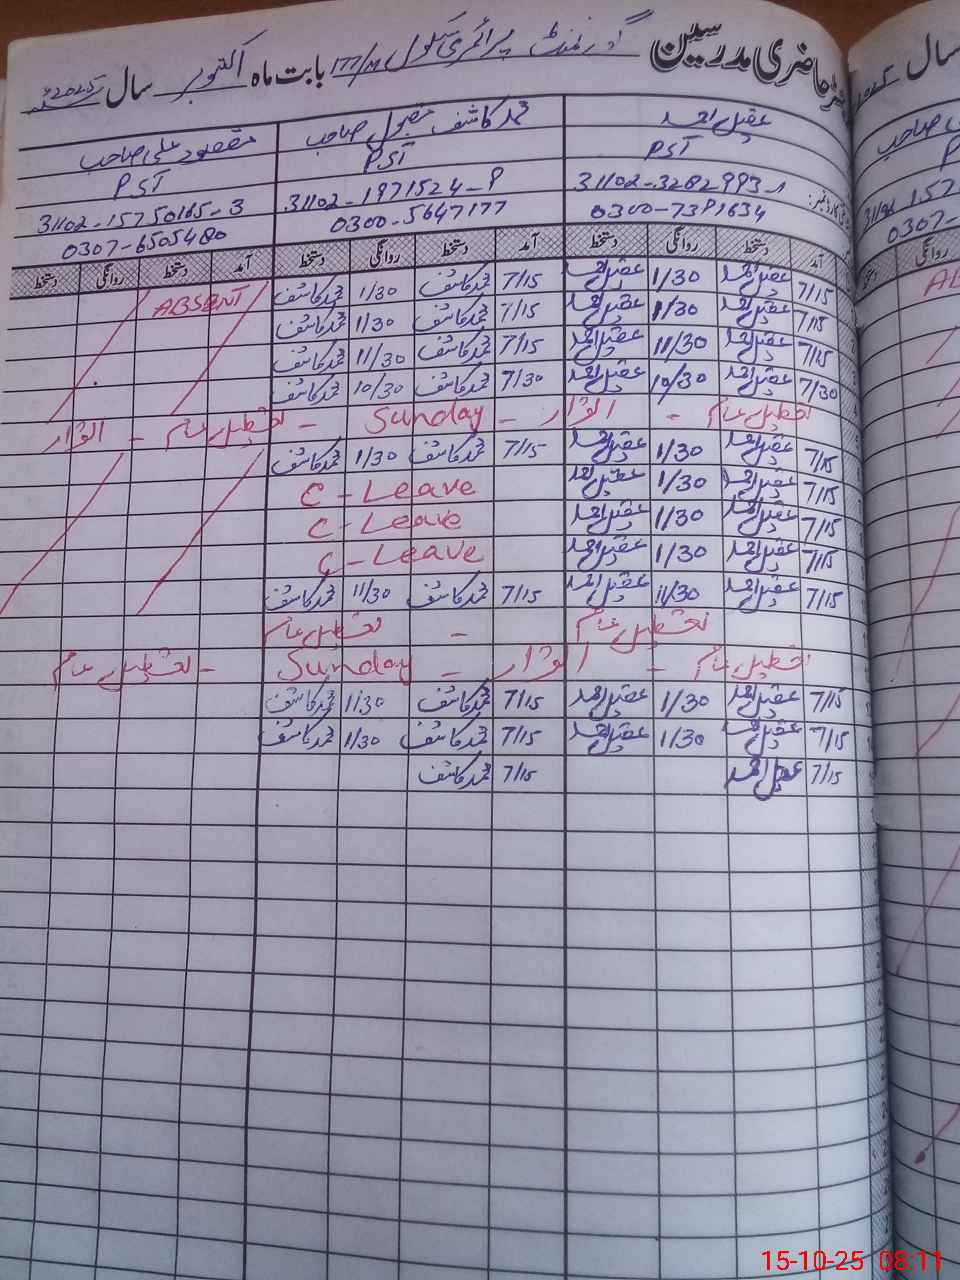 حاضری مدرسین گورنمنٹ پرائمری سکول 177/M بابت ماہ اکتوبر سال 2025ء
عقیل احمد محمد کاشف مقبول صاحب مقصود علی صاحب
PST PST PST
31102-3282993-1 31102-1971524-9 31102-15750165-3
0300-7391634 0300-5647177 0307-6505480
آمد دستخط روانگی دستخط آمد دستخط روانگی دستخط آمد دستخط روانگی دستخط
7/15 عقیل احمد 1/30 عقیل احمد 7/15 محمد کاشف 1/30 محمد کاشف ABSENT
7/15 عقیل احمد 1/30 عقیل احمد 7/15 محمد کاشف 1/30 محمد کاشف
7/15 عقیل احمد 11/30 عقیل احمد 7/15 محمد کاشف 11/30 محمد کاشف
7/30 عقیل احمد 10/30 عقیل احمد 7/30 محمد کاشف 10/30 محمد کاشف
تعطیل عام - اتوار - Sunday - تعطیل عام - اتوار
7/15 عقیل احمد 1/30 عقیل احمد 7/15 محمد کاشف 1/30 محمد کاشف
7/15 عقیل احمد 1/30 عقیل احمد C-Leave
7/15 عقیل احمد 1/30 عقیل احمد C-Leave
7/15 عقیل احمد 1/30 عقیل احمد C-Leave
7/15 عقیل احمد 11/30 عقیل احمد 7/15 محمد کاشف 11/30 محمد کاشف
تعطیل عام - تعطیل عام
تعطیل عام - اتوار - Sunday - تعطیل عام
7/15 عقیل احمد 1/30 عقیل احمد 7/15 محمد کاشف 1/30 محمد کاشف
7/15 عقیل احمد 1/30 عقیل احمد 7/15 محمد کاشف 1/30 محمد کاشف
7/15 عقیل احمد 7/15 محمد کاشف
15-10-25 08:11